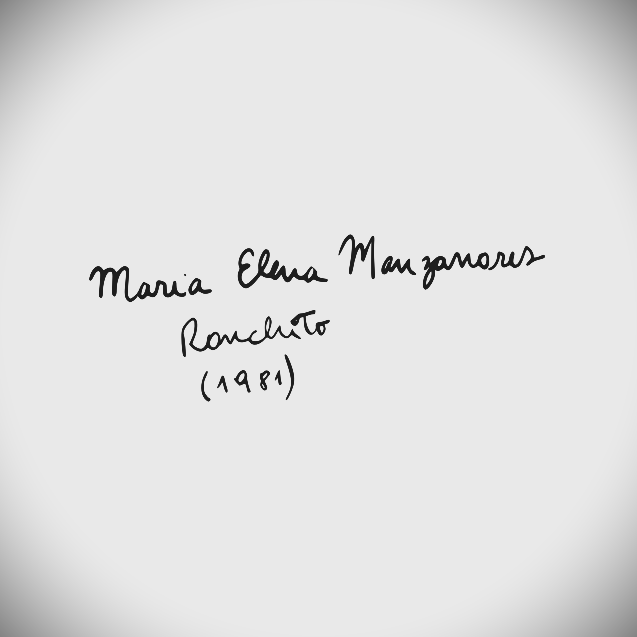 Maria Elena Manzanares
Ronchito
(1981)